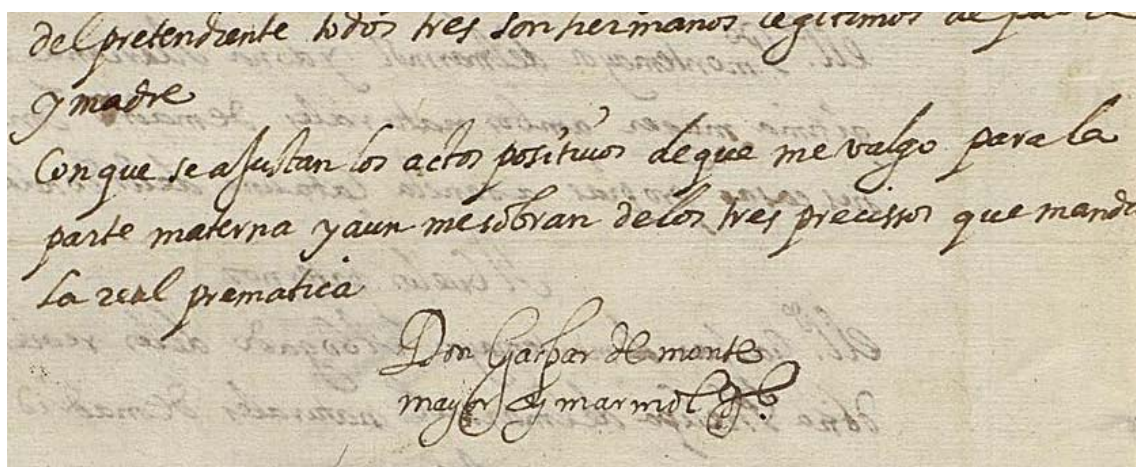 del pretendiente todos tres son hermanos legitimos de padre
y madre
Con que se aJustan los actos positiuos de que me valgo para la
parte materna y aun me sobran de los tres precissos que manda
la real prematica
Don Gaspar de monte
mayor y marmol